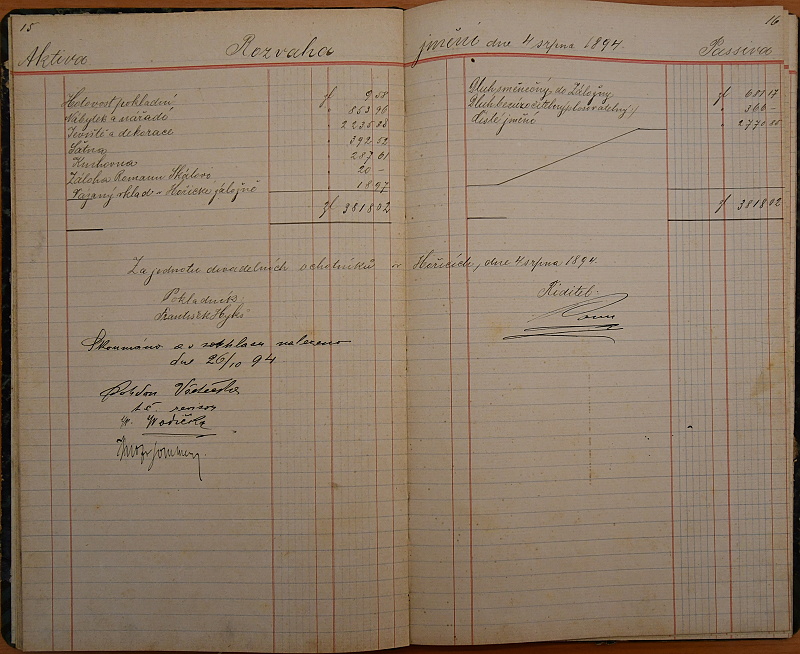 15
Aktiva Rozvaha
Hotovost pokladní zl 9 58
Nábytek a nářadí " 853 96
Jeviště a dekorace " 2235 88
Šatna " 392 52
Knihovna " 287 61
Záloha Romanu Skálovi " 20 –
Vázaný vklad v Hořické záložně 18 97
zl 3818 02
Za jednotu divadelních ochotníků v
Pokladník:
František
Skoumáno a v souhlasu nalezeno
dne 26/10 94
t.č. revisor
16
jmění dne 4 srpna 1894. Passiva
Dluh směnečný do Záložny zl 681 17
Dluh bezúročitelný 366 –
Čisté jmění " 2770 85
zl 3818 02
Hořicích, dne 4 srpna 1894.
Ředitel: